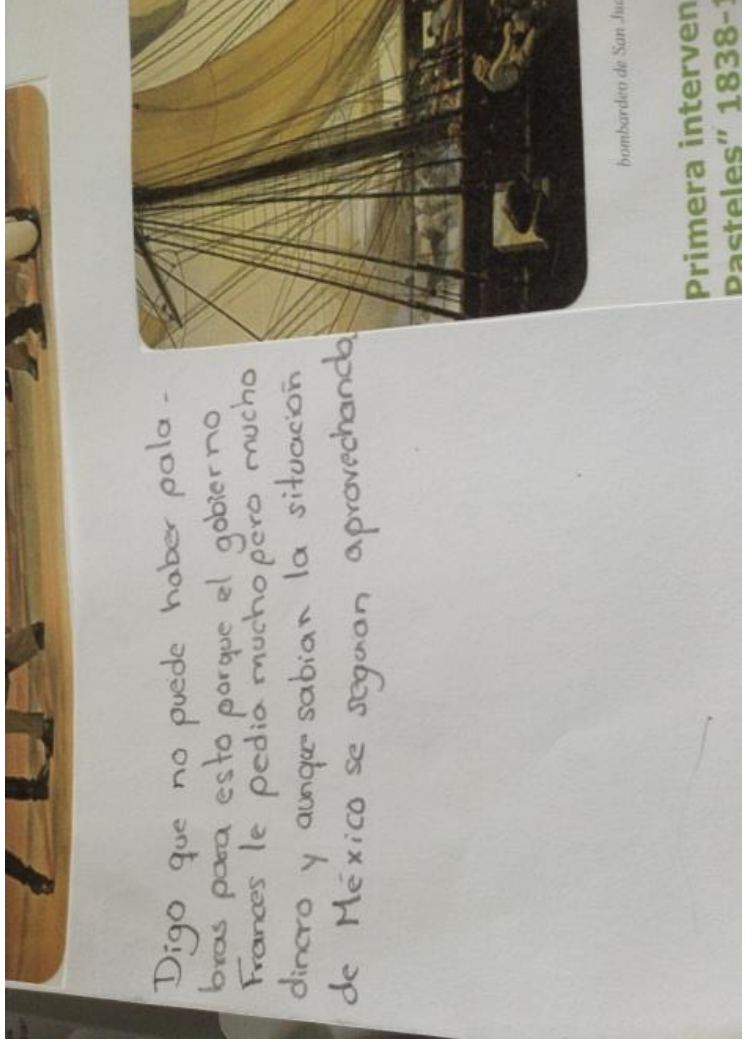 Digo que no puede haber pala-
bras para esto porque el gobierno
Frances le pedia mucho pero mucho
dinero y aunque sabian la situación
de México se seguian aprovechando
bombardeo de San Jua
Primera interven
Pasteles" 1838-1